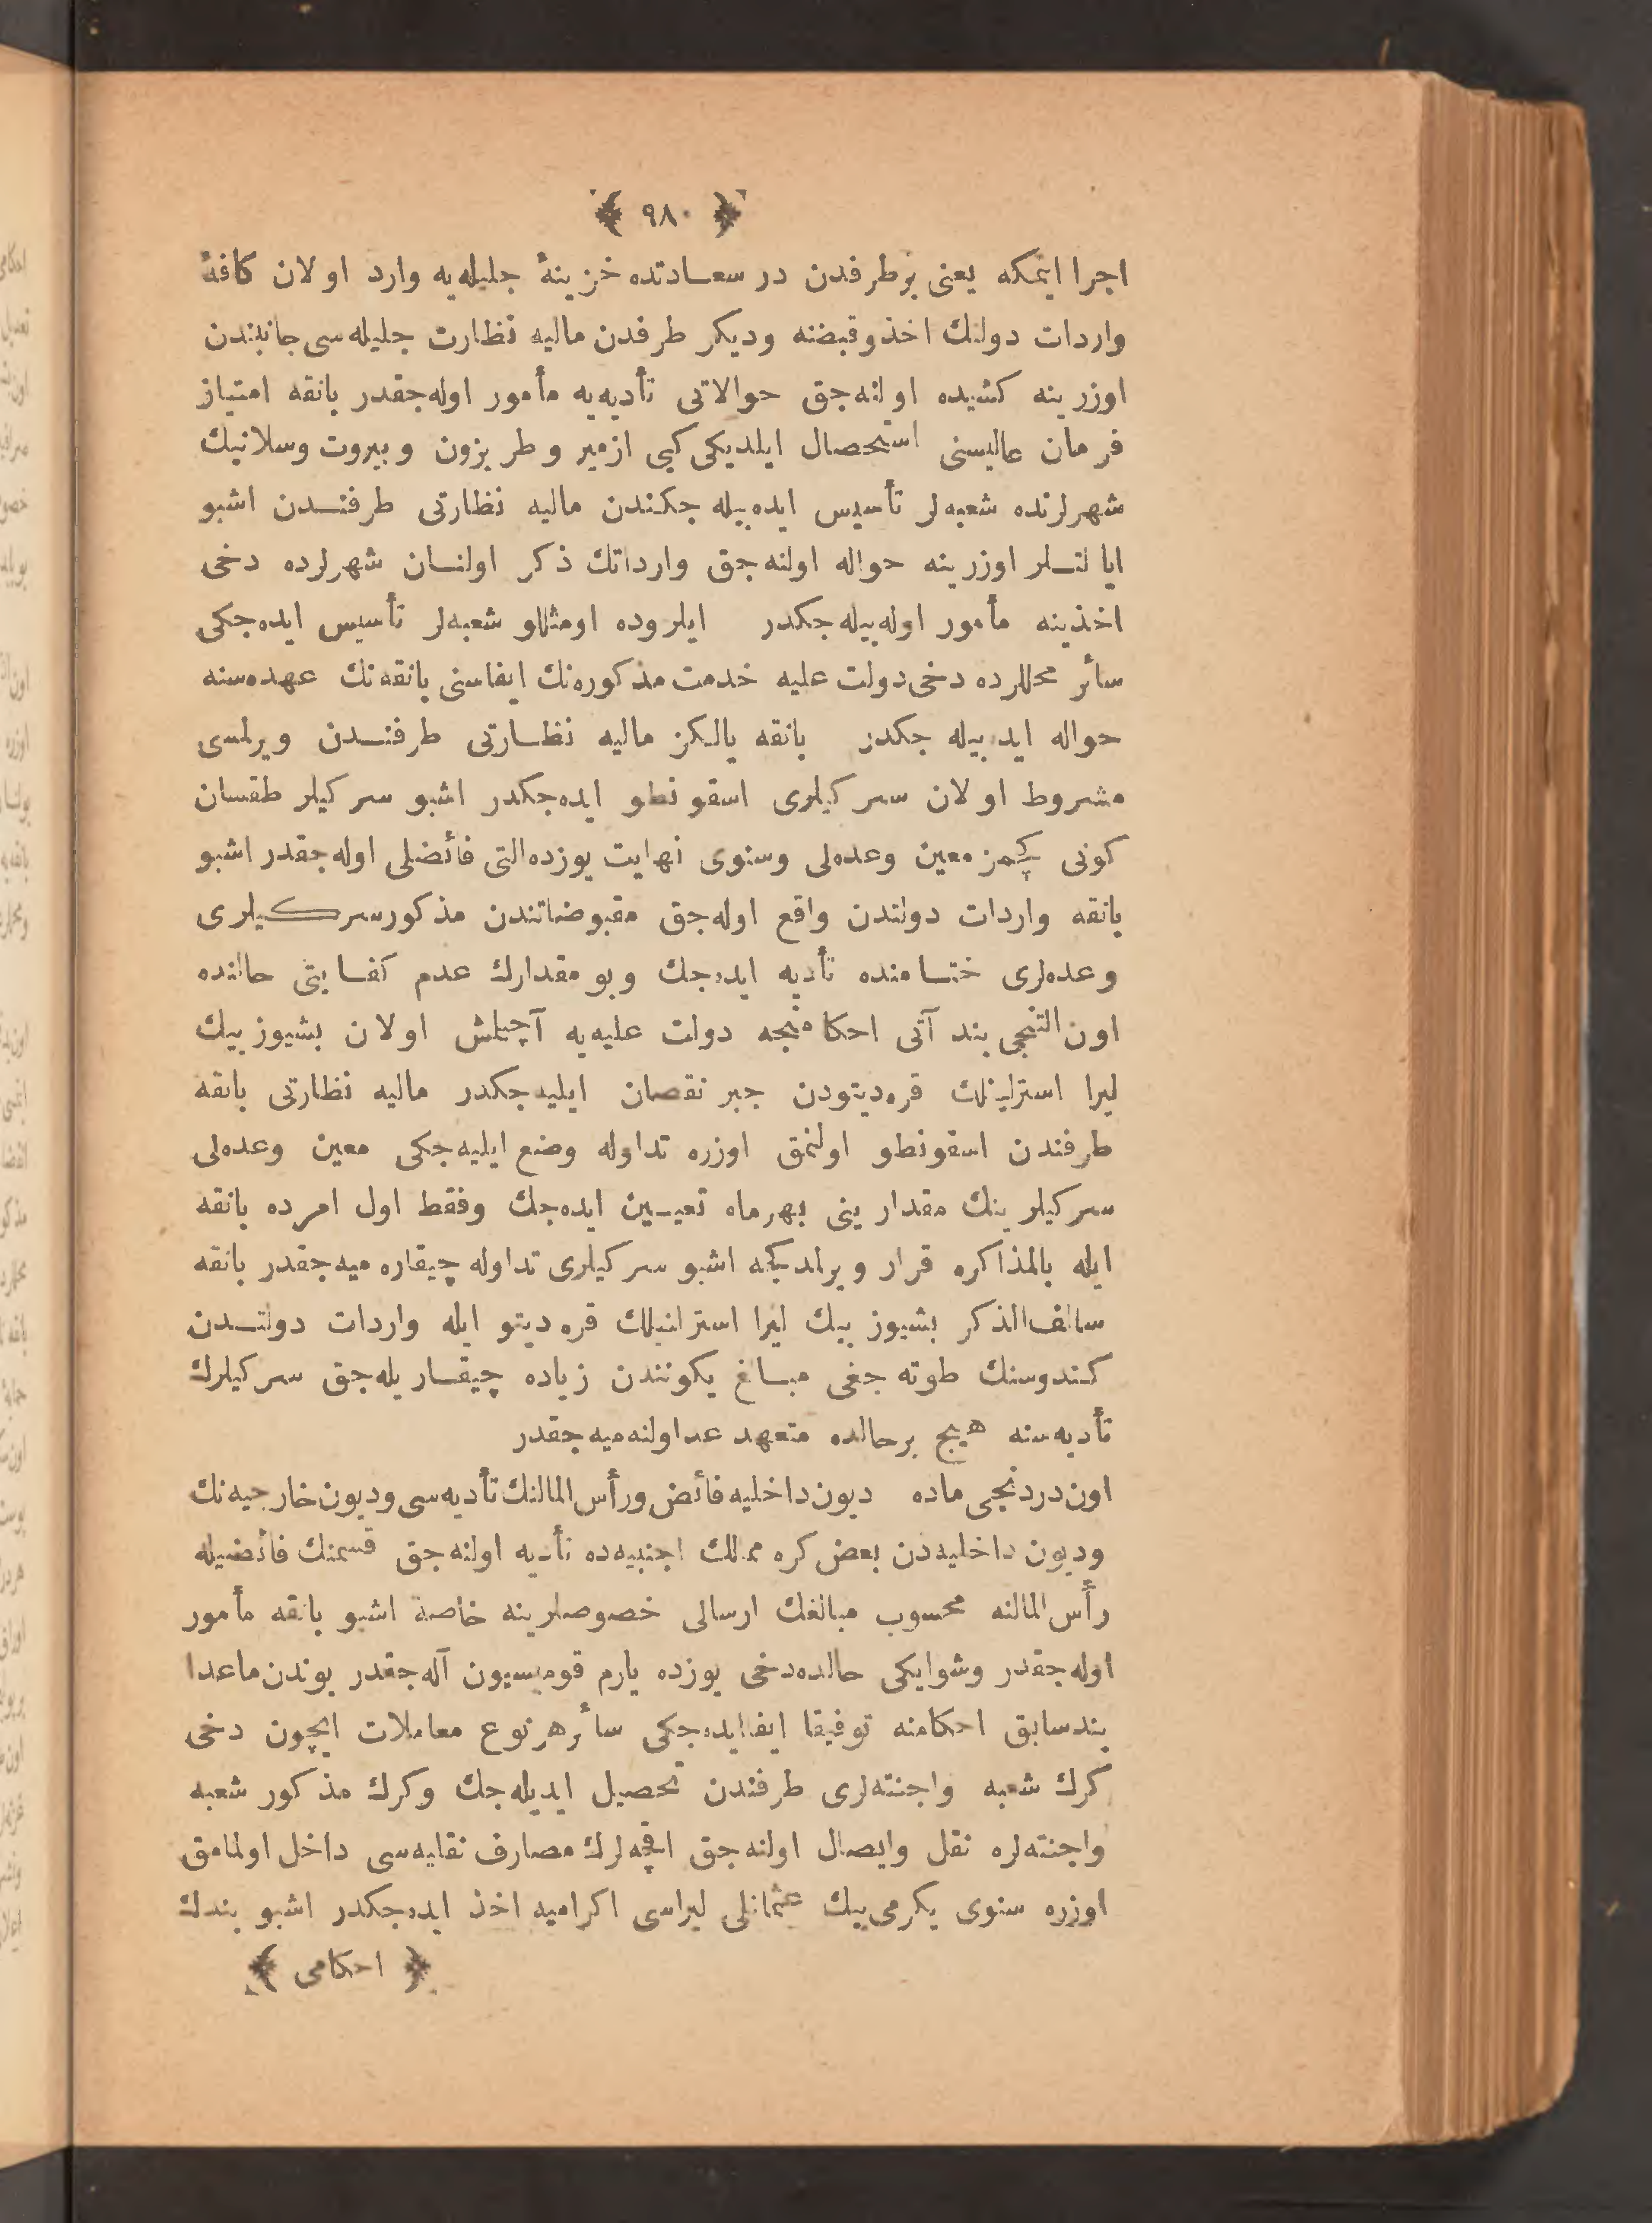 ﴿ ٩٨٠ ﴾
اجرا ایتمکه یعنی برطرفدن در سعادتده خزینهٔ جلیله‌یه وارد اولان کافهٔ
واردات دولتك اخذ وقبضنه ودیکر طرفدن مالیه نظارت جلیله‌سی جانبندن
اوزرینه کشیده اولنه‌جق حوالاتی تأدیه‌یه مأمور اوله‌جقدر بانقه امتیاز
فرمان عالیسنی استحصال ایلدیکی کبی ازمیر وطربزون وبیروت وسلانیك
شهرلرنده شعبه‌لر تأسیس ایده‌بیله جکندن مالیه نظارتی طرفندن اشبو
ایالتلر اوزرینه حواله اولنه‌جق وارداتك ذکر اولنان شهرلرده دخی
اخذینه مأمور اوله‌بیله‌جکدر ایلروده اومثللو شعبه‌لر تأسیس ایده‌جکی
سائر محللرده دخی دولت علیه خدمت مذکوره‌نك ایفاسنی بانقه‌نك عهده‌سنه
حواله ایده بیله جکدر بانقه یالکز مالیه نظارتی طرفندن ویرلمسی
مشروط اولان سرکیلری اسقونطو ایده‌جکدر اشبو سرکیلر طقسان
کونی کچمز معین وعده‌لی وسنوی نهایت یوزده‌التی فائضلی اوله‌جقدر اشبو
بانقه واردات دولتدن واقع اوله‌جق مقبوضاتندن مذکور سرکیلری
وعده‌لری ختامنده تأدیه ایده‌جك وبو مقدارك عدم کفایتی حالنده
اون التنجی بند آتی احکامنجه دولت علیه‌یه آچلمش اولان بشیوز بیك
لیرا استرلینلك قره‌دیتودن جبر نقصان ایلیه‌جکدر مالیه نظارتی بانقه
طرفندن اسقونطو اولنمق اوزره تداوله وضع ایلیه‌جکی معین وعده‌لی
سرکیلرینك مقدارینی بهرماه تعیین ایده‌جك وفقط اول امرده بانقه
ایله بالمذاکره قرار ویرلدیکجه اشبو سرکیلری تداوله چیقاره میه‌جقدر بانقه
سالف‌الذکر بشیوز بیك لیرا استرلنیلك قره دیتو ایله واردات دولتدن
کندوسنك طوته جغی مبالغ یکونندن زیاده چیقاریله‌جق سرکیلرك
تأدیه‌سنه هیچ برحالده متعهد عد اولنه‌میه‌جقدر
اون‌دردنجی ماده دیون داخلیه فائض ورأس المالنك تأدیه‌سی ودیون خارجیه‌نك
ودیون داخلیه‌دن بعض کره ممالك اجنبیه‌ده تأدیه اولنه‌جق قسمنك فائضیله
رأس المالنه محسوب مبالغك ارسالی خصوصلرینه خاصة اشبو بانقه مأمور
اوله‌جقدر وشوایکی حالده‌دخی یوزده یارم قومیسیون آله‌جقدر بوندن ماعدا
بند سابق احکامنه توفیقا ایفا ایده‌جکی سائر هرنوع معاملات ایچون دخی
کرك شعبه واجنته‌لری طرفندن تحصیل ایدیله‌جك وکرك مذکور شعبه
واجنته‌لره نقل وایصال اولنه‌جق اقچه‌لرك مصارف نقلیه‌سی داخل اولمامق
اوزره سنوی یکرمی‌بیك عثمانلی لیراسی اکرامیه اخذ ایده‌جکدر اشبو بندك
﴿ احکامی ﴾